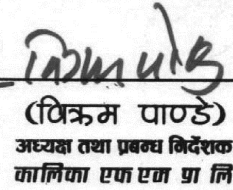 (विक्रम पाण्डे)
अध्यक्ष तथा प्रबन्ध निर्देशक
कालिका एफ एम प्रा लि